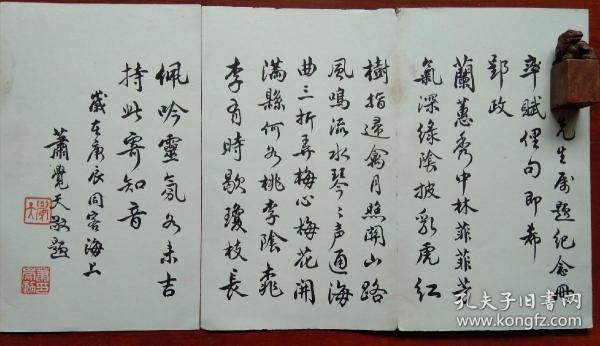 先生属題紀念冊
率賦俚句即希
郢政
蘭蕙秀中林菲菲芳
氣深綠陰披乳虎紅
樹指還禽月照關山路
風鳴流水琴〻声通海
曲三折弄梅心梅花開
滿縣何如桃李陰桃
李有時歇瓊枝長
佩吟靈氛如未吉
持此寄知音
歲在庚辰同客海上
蕭覺天敬題
孔夫子旧书网
www.kongfz.com